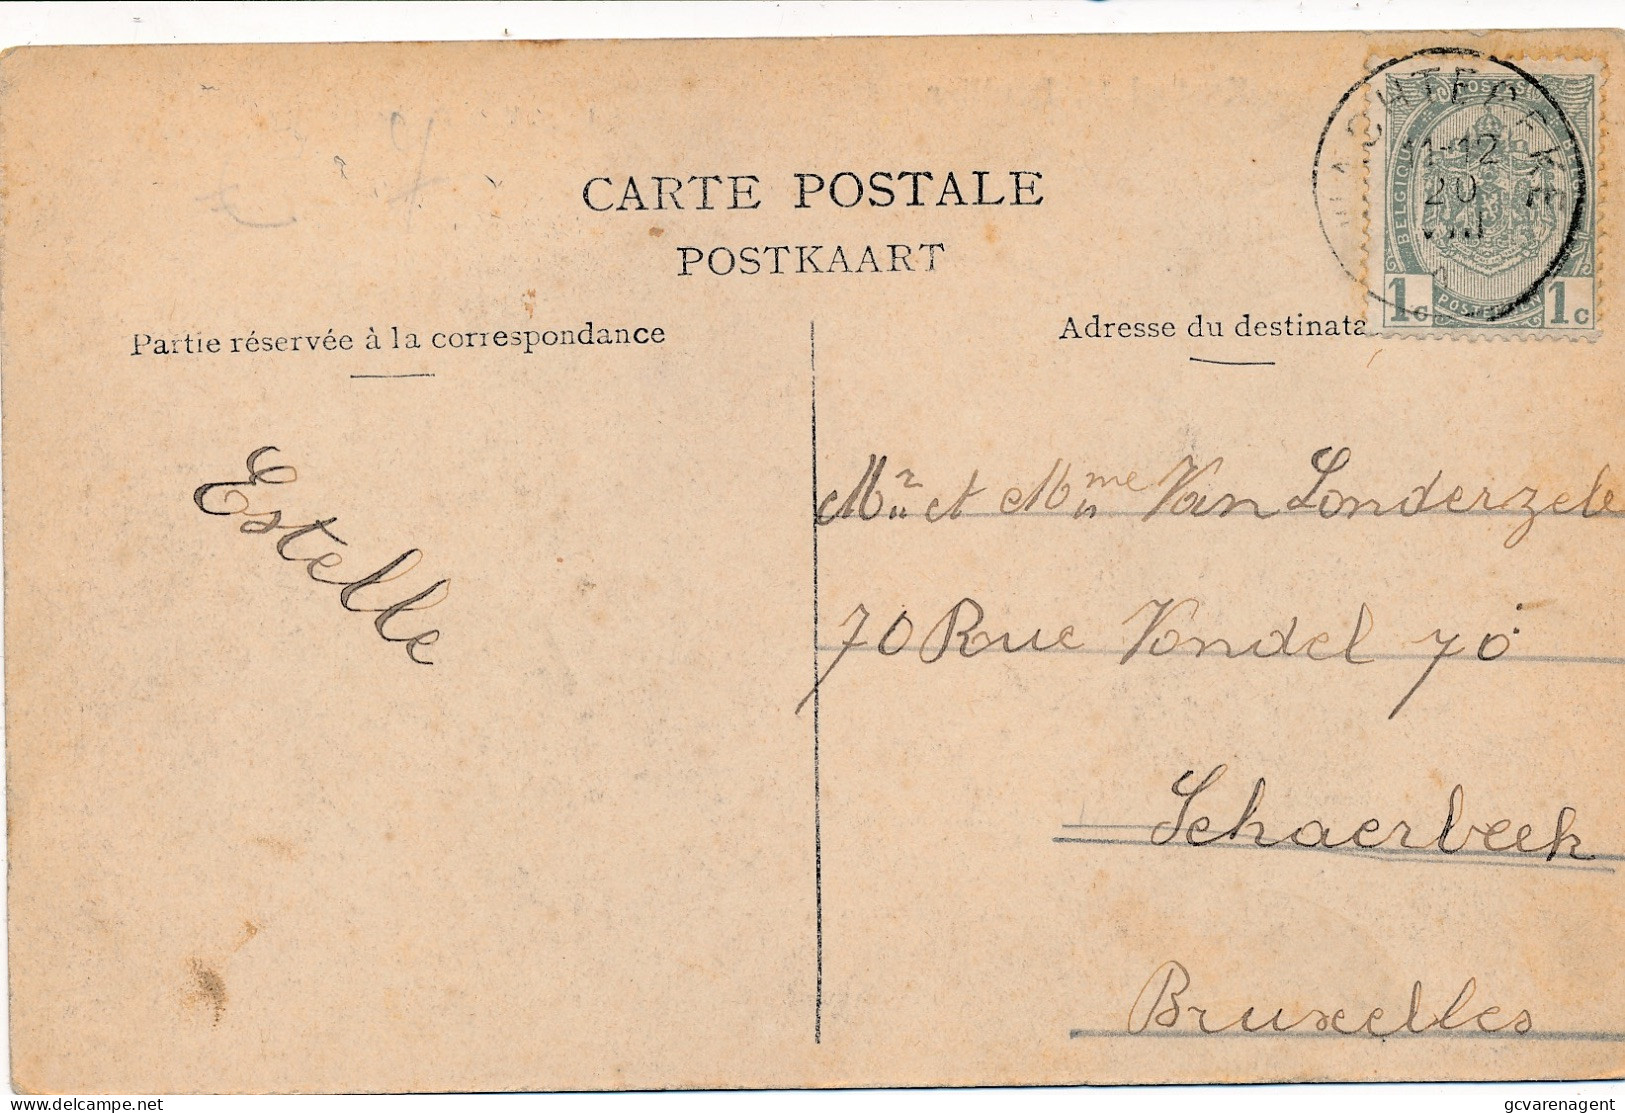 CARTE POSTALE
POSTKAART
Partie réservée à la correspondance
Adresse du destinata
BELGIQUE
1c 1c
11-12
20
Estelle
Mr et Mme Van Londerzele
70 Rue Vondel 70
Schaerbeek
Bruxelles
delcampe.net
gcvarenagent